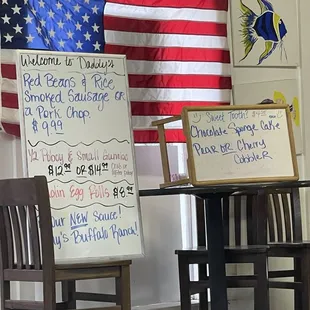 Welcome to Daddy's
Red Beans & Rice
Smoked Sausage or
a Pork Chop
$9.99
1/2 Poboy & Small Gumbo
$12.99 OR $14.99
Egg Rolls $8.99
Our NEW Sauce!
Buffalo Ranch!
Sweet Tooth?
Chocolate Sponge Cake
Pear OR Cherry
Cobbler